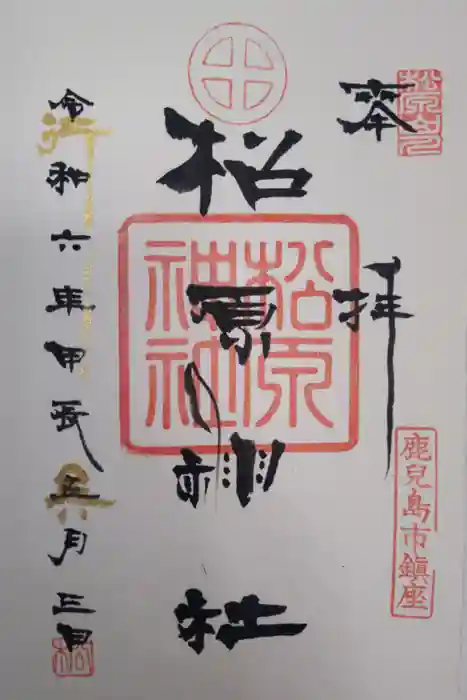 奉拝
松原神社
松原神社
鹿兒島市鎮座
令和六年甲辰五月三日